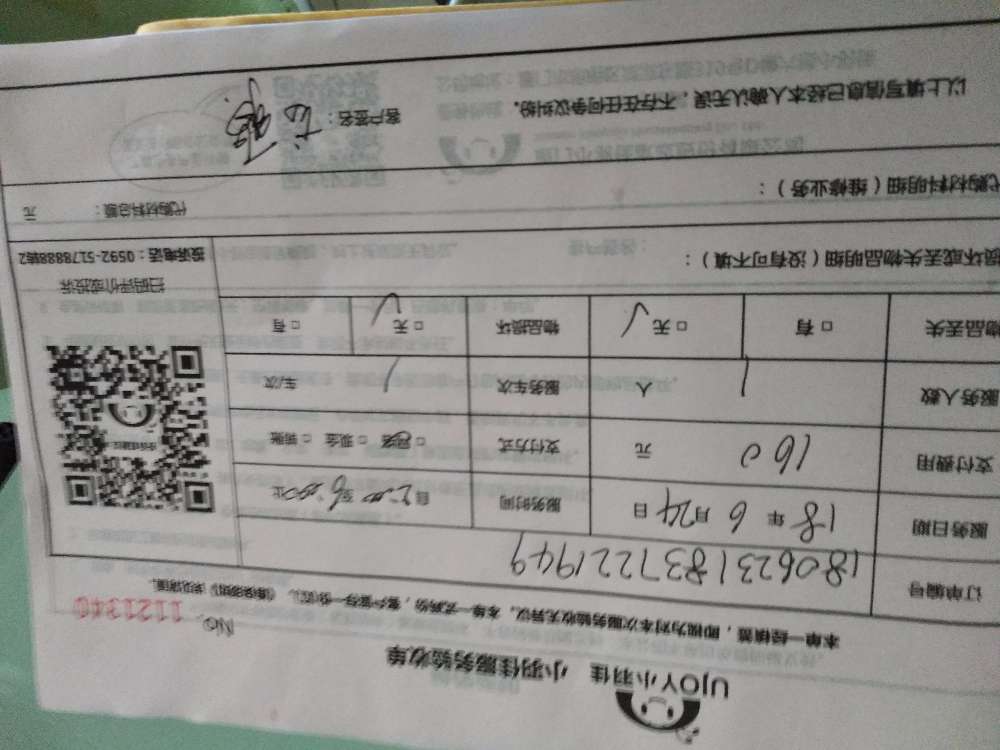 UJOY小羽佳 小羽佳服务验收单
No. 1121340
本单一经填写，即视为对本次服务验收无异议。本单一式两份，客户留存一份
订单编号 180623183722 1949
服务日期 18年6月24日 服务时间 自2:00至6:00止
支付费用 160元 支付方式 □网络 □现金 □转账
服务人数 1人 服务车次 1车/次
物品丢失 □有 □无√ 物品损坏 □无√ □有
扫码评价或投诉
投诉电话：0592-5178888转2
损坏或丢失物品明细（没有可不填）：
代购材料明细（维修业务）： 代购材料总额： 元
以上填写信息已经本人确认无误，不存在任何争议纠纷. 客户签名：